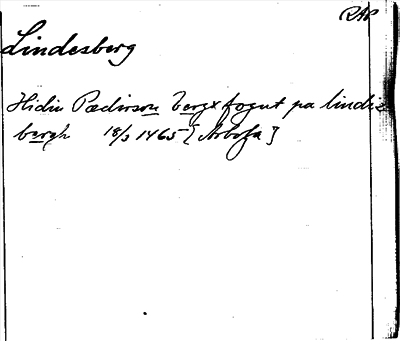 RAP
Lindesberg
Hidin Pædirson bergx fogut pa lindis
bergh 18/3 1465 [Arboga]